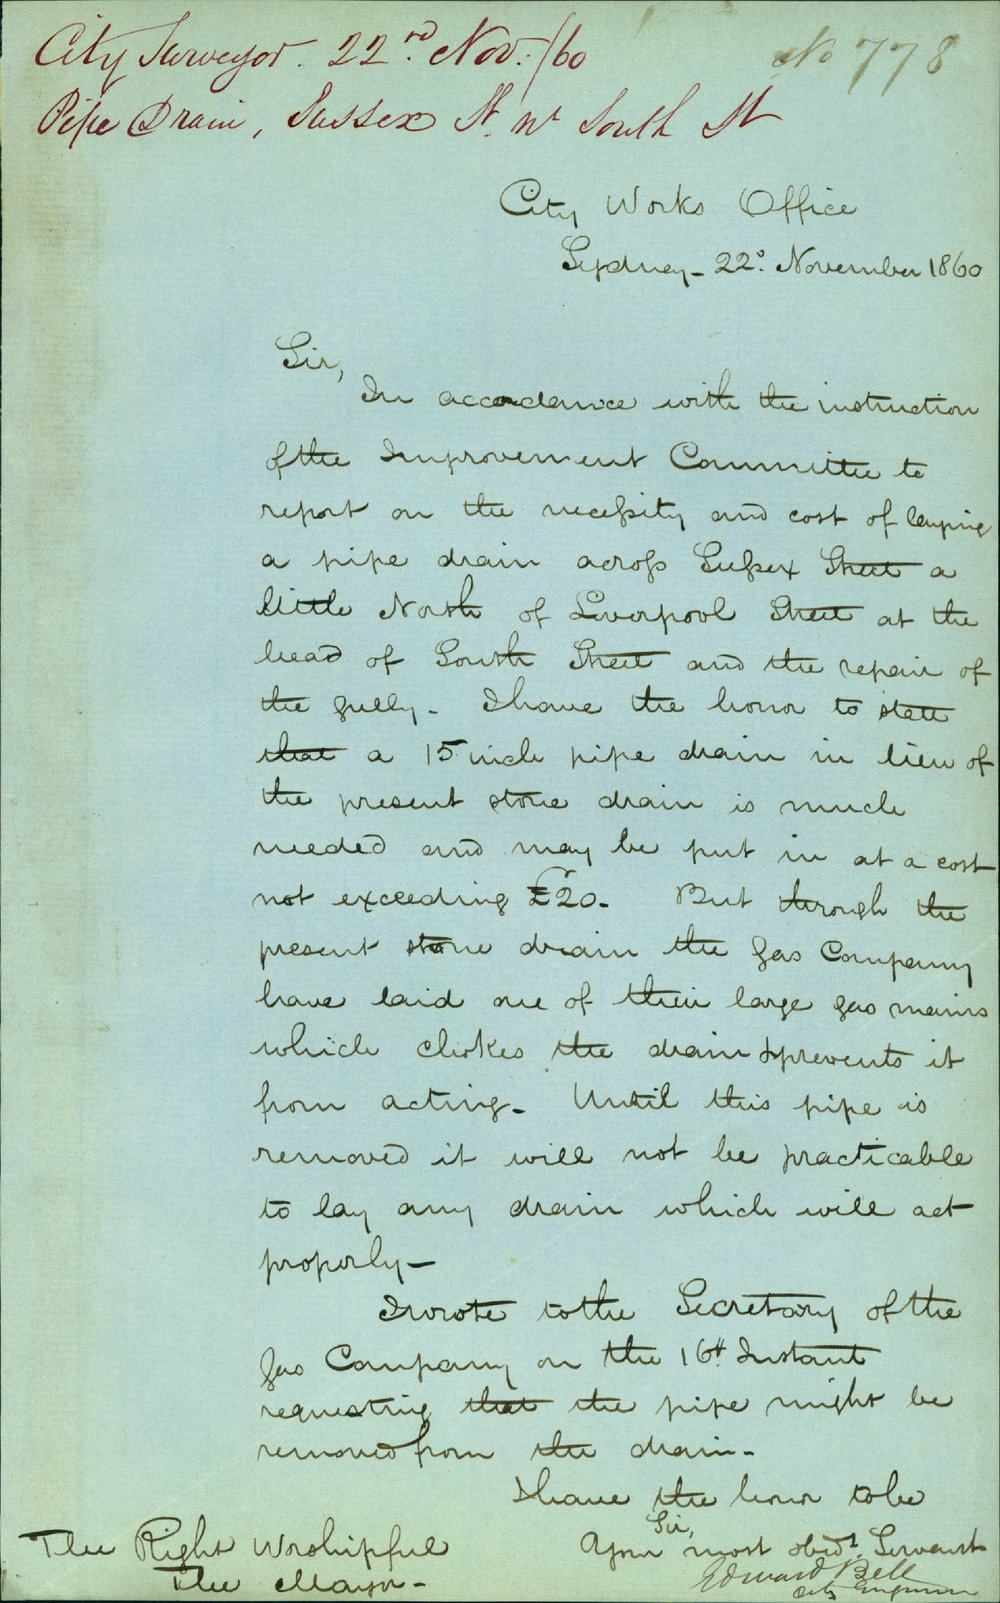 City Surveyor. 22nd Nov. /60
No 778
Pipe Drain, Sussex St. nr South St
City Works Office
Sydney - 22d. November 1860
Sir,
In accordance with the instruction
of the Improvement Committee to
report on the necessity and cost of laying
a pipe drain across Sussex Street a
little North of Liverpool Street at the
head of South Street and the repair of
the gully - I have the honor to state
that a 15 inch pipe drain in lieu of
the present stone drain is much
needed and may be put in at a cost
not exceeding £20 - But through the
present stone drain the Gas Company
have laid one of their large gas mains
which chokes the drain & prevents it
from acting - Until this pipe is
removed it will not be practicable
to lay any drain which will act
properly -
I wrote to the Secretary of the
Gas Company on the 16th Instant
requesting that the pipe might be
removed from the drain -
I have the honor to be
Sir,
Your most obedt. Servant
Edward Bell
City Engineer
The Right Worshipful
The Mayor -